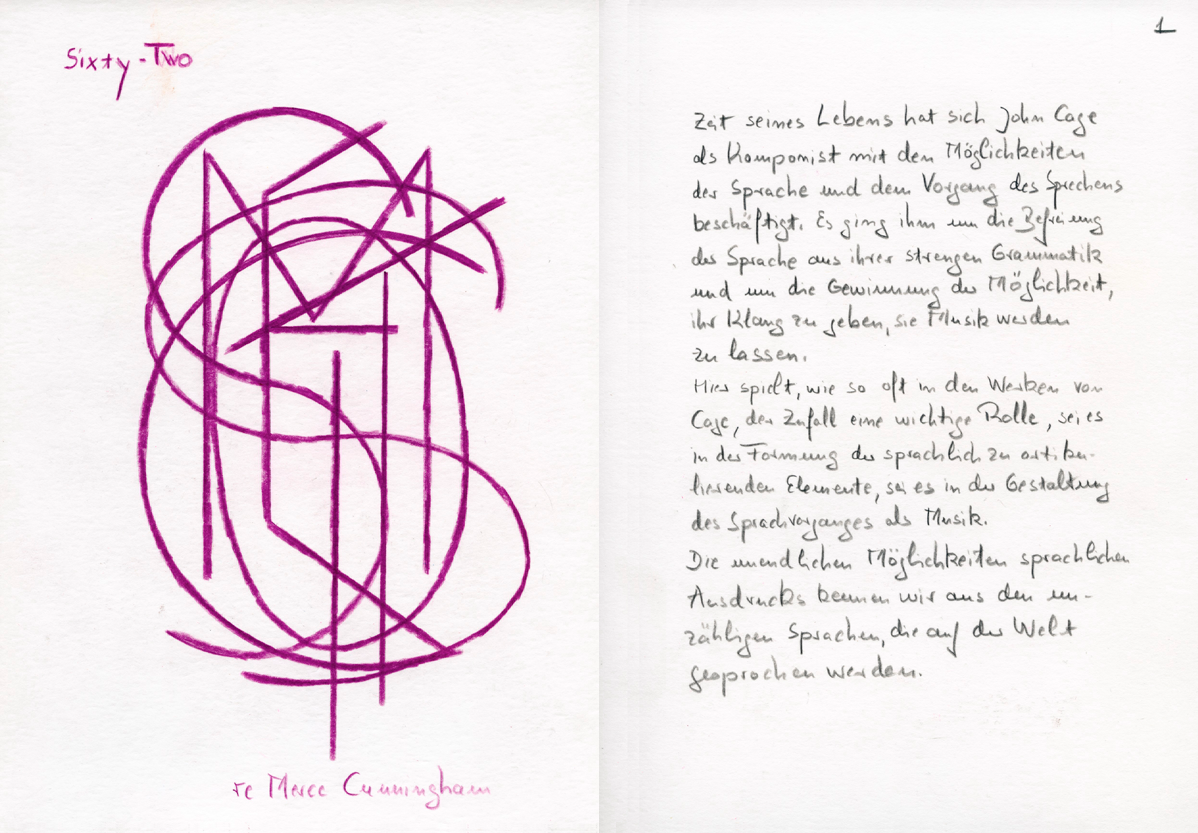 Sixty-Two
re Merce Cunningham
1
Zeit seines Lebens hat sich John Cage
als Komponist mit den Möglichkeiten
der Sprache und dem Vorgang des Sprechens
beschäftigt. Es ging ihm um die Befreiung
der Sprache aus ihrer strengen Grammatik
und um die Gewinnung der Möglichkeit,
ihr Klang zu geben, sie Musik werden
zu lassen.
Hier spielt, wie so oft in den Werken von
Cage, der Zufall eine wichtige Rolle, sei es
in der Formung der sprachlich zu artiku-
lierenden Elemente, sei es in der Gestaltung
des Sprachvorganges als Musik.
Die unendlichen Möglichkeiten sprachlichen
Ausdrucks kennen wir aus den un-
zähligen Sprachen, die auf der Welt
gesprochen werden.